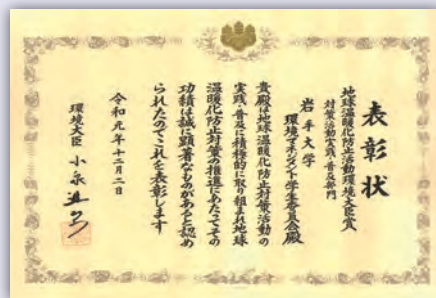 表彰状
地球温暖化防止活動環境大臣賞
対策活動実践・普及部門
岩手大学
環境マネジメント学生委員会殿
貴殿は地球温暖化防止対策活動の
実践・普及に積極的に取り組まれ地球
温暖化防止対策の推進にあたってその
功績は誠に顕著なものがあると認め
られたのでこれを表彰します
令和元年十二月二日
環境大臣 小泉進次郎